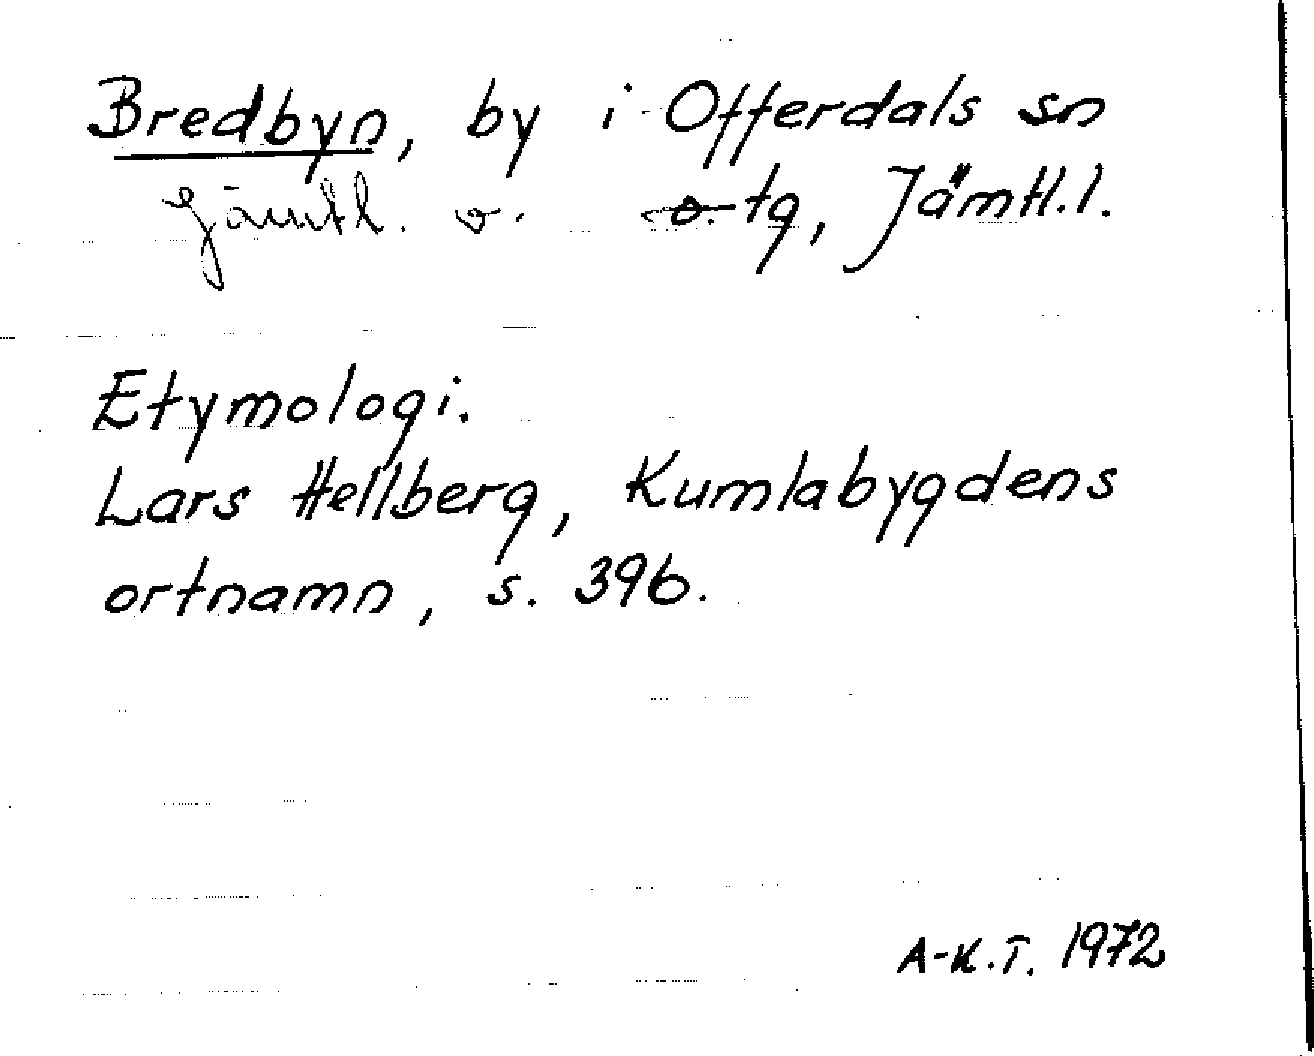 Bredbyn, by i Offerdals sn
Jämtl. v. o. tg, Jämtl.l.
Etymologi.
Lars Hellberg, Kumlabygdens
ortnamn, s. 396.
A-K.T. 1972